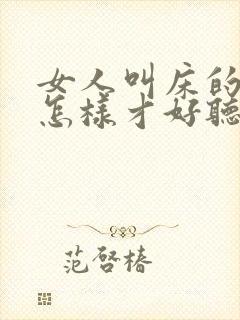 女人叫床的
怎樣才好聽
范啓椿